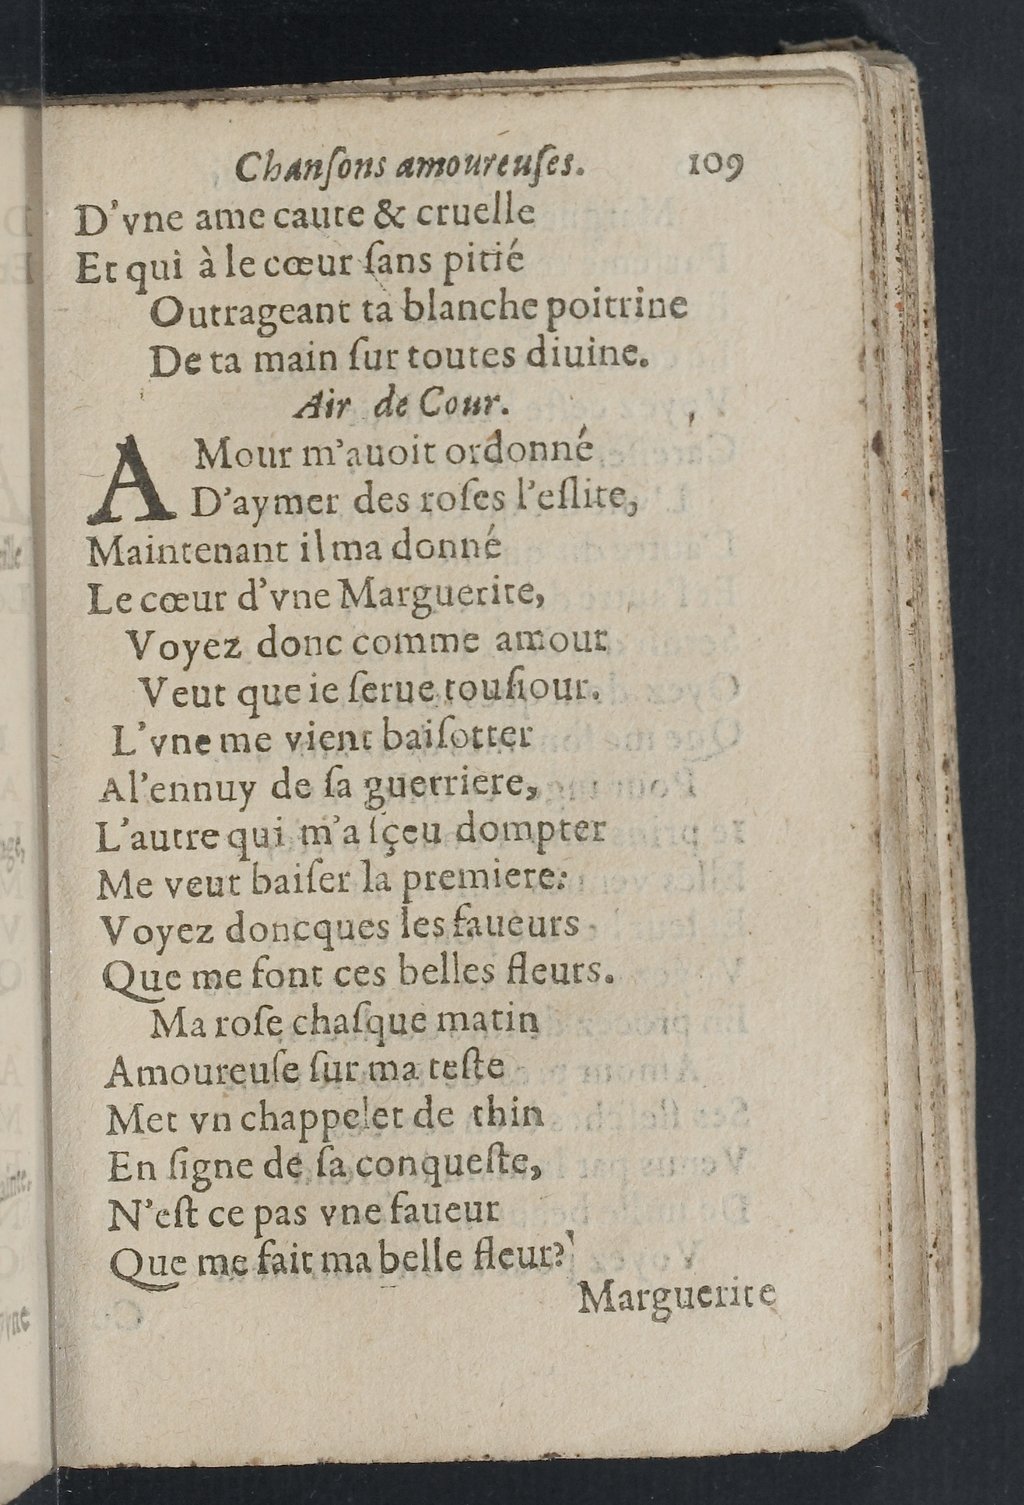 Chanſons amoureuſes. 109
D'vne ame caute & cruelle
Et qui à le cœur ſans pitié
Outrageant ta blanche poitrine
De ta main ſur toutes diuine.
Air de Cour.
AMour m'auoit ordonné
D'aymer des roſes l'eſlite,
Maintenant il ma donné
Le cœur d'vne Marguerite,
Voyez donc comme amour
Veut que ie ſerue touſiour.
L'vne me vient baiſotter
Al'ennuy de ſa guerriere,
L'autre qui m'a ſçeu dompter
Me veut baiſer la premiere:
Voyez doncques les faueurs
Que me font ces belles fleurs.
Ma roſe chaſque matin
Amoureuſe ſur ma teſte
Met vn chappelet de thin
En ſigne de ſa conqueſte,
N'eſt ce pas vne faueur
Que me fait ma belle fleur?
Marguerite